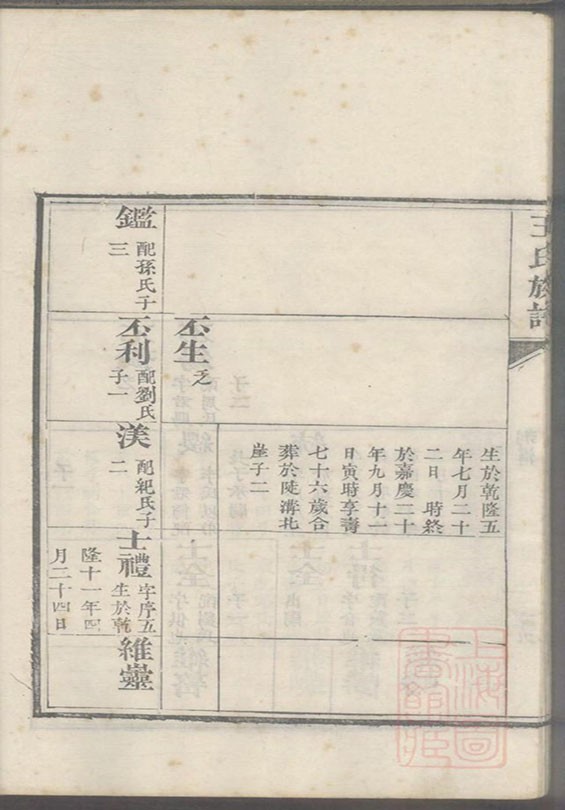 王氏族譜
鑑
配孫氏子
三
丕生
乏
丕利
配劉氏
子一
生於乾隆五
年七月二十
二日 時終
於嘉慶二十
年九月十一
日寅時享壽
七十六歲合
葬於陡溝北
崖子二
渼
配紀氏子
二
士禮
字序五
生於乾
隆十一年四
月二十四日
維靈
上海圖
書館藏